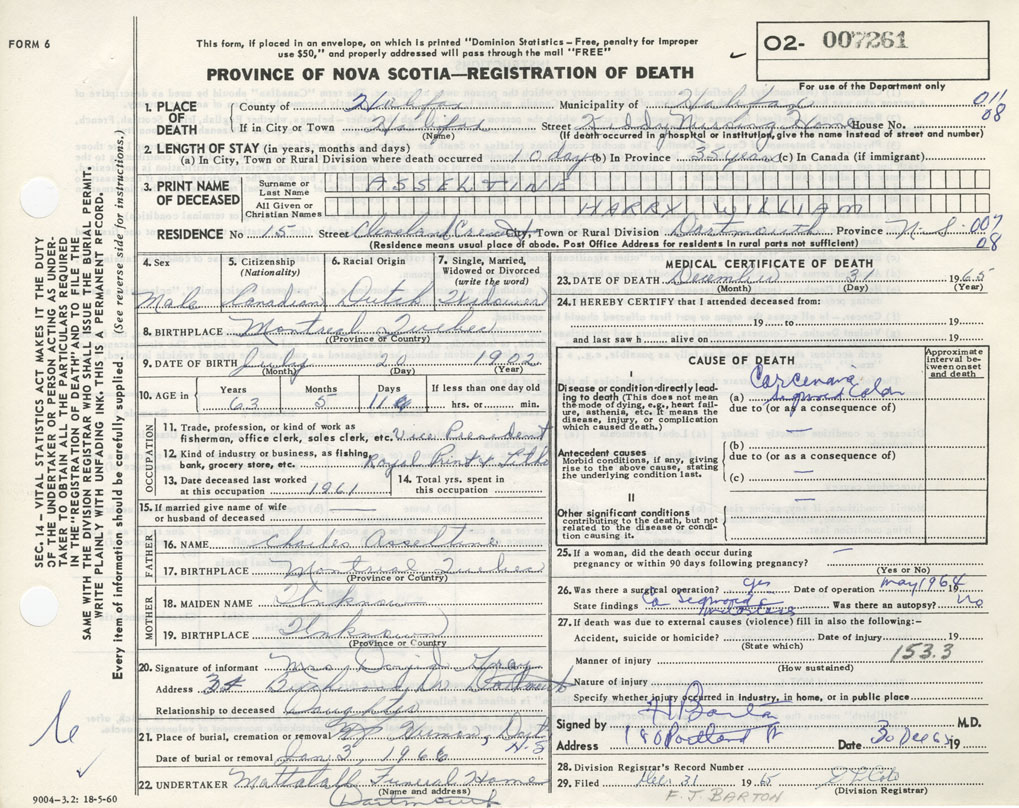 FORM 6
This form, if placed in an envelope, on which is printed "Dominion Statistics – Free, penalty for improper
use $50," and properly addressed will pass through the mail "FREE"
02- 007261
For use of the Department only
PROVINCE OF NOVA SCOTIA—REGISTRATION OF DEATH
011
08
1. PLACE OF DEATH
County of Halifax Municipality of Halifax
If in City or Town Halifax (Name) Street Nursing Home House No.
(If death occurred in hospital or institution, give the name instead of street and number)
2. LENGTH OF STAY (in years, months and days)
(a) In City, Town or Rural Division where death occurred 10 days (b) In Province 35 years (c) In Canada (if immigrant)
3. PRINT NAME OF DECEASED
Surname or Last Name ASSELTINE
All Given or Christian Names HARRY WILLIAM
RESIDENCE No 15 Street Cleveland Crescent City, Town or Rural Division Dartmouth Province N.S. 007
08
(Residence means usual place of abode. Post Office Address for residents in rural parts not sufficient)
4. Sex Male
5. Citizenship (Nationality) Canadian
6. Racial Origin Dutch
7. Single, Married, Widowed or Divorced (write the word) Widower
8. BIRTHPLACE Montreal Quebec
(Province or Country)
9. DATE OF BIRTH July 20 1902
(Month) (Day) (Year)
10. AGE in Years 63 Months 5 Days 11 If less than one day old hrs. or min.
OCCUPATION
11. Trade, profession, or kind of work as
fisherman, office clerk, sales clerk, etc. Vice President
12. Kind of industry or business, as fishing,
bank, grocery store, etc. Royal Print & Litho
13. Date deceased last worked
at this occupation 1961
14. Total yrs. spent in
this occupation
15. If married give name of wife
or husband of deceased
FATHER
16. NAME Charles Asseltine
17. BIRTHPLACE Montreal Quebec
(Province or Country)
MOTHER
18. MAIDEN NAME Unknown
19. BIRTHPLACE Unknown
(Province or Country)
20. Signature of informant Mrs. David Gray
Address 34 Birchwood Dr Dartmouth
Relationship to deceased Daughter
21. Place of burial, cremation or removal Dart N.S
Date of burial or removal Jan 3, 1966
22. UNDERTAKER Mattatall Funeral Home
(Name and address)
Dartmouth
MEDICAL CERTIFICATE OF DEATH
23. DATE OF DEATH December 31 1965
(Month) (Day) (Year)
24. I HEREBY CERTIFY that I attended deceased from:
19 to 19
and last saw h alive on 19
CAUSE OF DEATH
Approximate interval between onset and death
I
Disease or condition directly leading
to death (This does not mean
the mode of dying, e.g., heart failure,
asthenia, etc. It means the
disease, injury, or complication
which caused death.)
(a) Carcinoma
Sigmoid Colon
due to (or as a consequence of)
Antecedent causes
Morbid conditions, if any, giving
rise to the above cause, stating
the underlying condition last.
(b)
due to (or as a consequence of)
(c)
II
Other significant conditions
contributing to the death, but not
related to the disease or condition
causing it.
25. If a woman, did the death occur during
pregnancy or within 90 days following pregnancy?
(Yes or No)
26. Was there a surgical operation? yes Date of operation May 1964 19
State findings Ca Sigmoid c Was there an autopsy? no
27. If death was due to external causes (violence) fill in also the following:-
Accident, suicide or homicide? Date of injury 19
(State which)
153.3
Manner of injury
(How sustained)
Nature of injury
Specify whether injury occurred in Industry, in home, or in public place
Signed by M.D.
Address 180 Portland St Date 30 Dec 65 19
28. Division Registrar's Record Number
29. Filed Dec. 31 1965
(Division Registrar)
F. J. BARTON
SEC. 14 – VITAL STATISTICS ACT MAKES IT THE DUTY
OF THE UNDERTAKER OR PERSON ACTING AS UNDER-
TAKER TO OBTAIN ALL THE PARTICULARS REQUIRED
IN THE "REGISTRATION OF DEATH" AND TO FILE THE
SAME WITH THE DIVISION REGISTRAR WHO SHALL ISSUE THE BURIAL PERMIT.
WRITE PLAINLY WITH UNFADING INK. THIS IS A PERMANENT RECORD.
Every item of information should be carefully supplied. (See reverse side for instructions.)
9004-3.2: 18-5-60